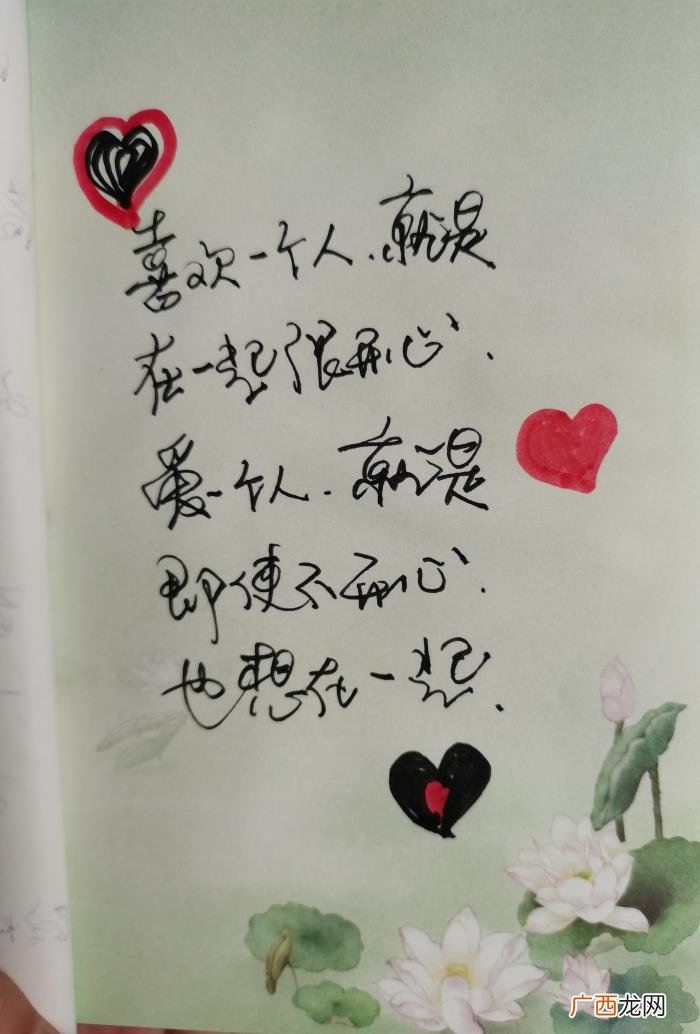 喜欢一个人、就是
在一起很开心、
爱一个人、就是
即使不开心、
也想在一起、
广西龙网